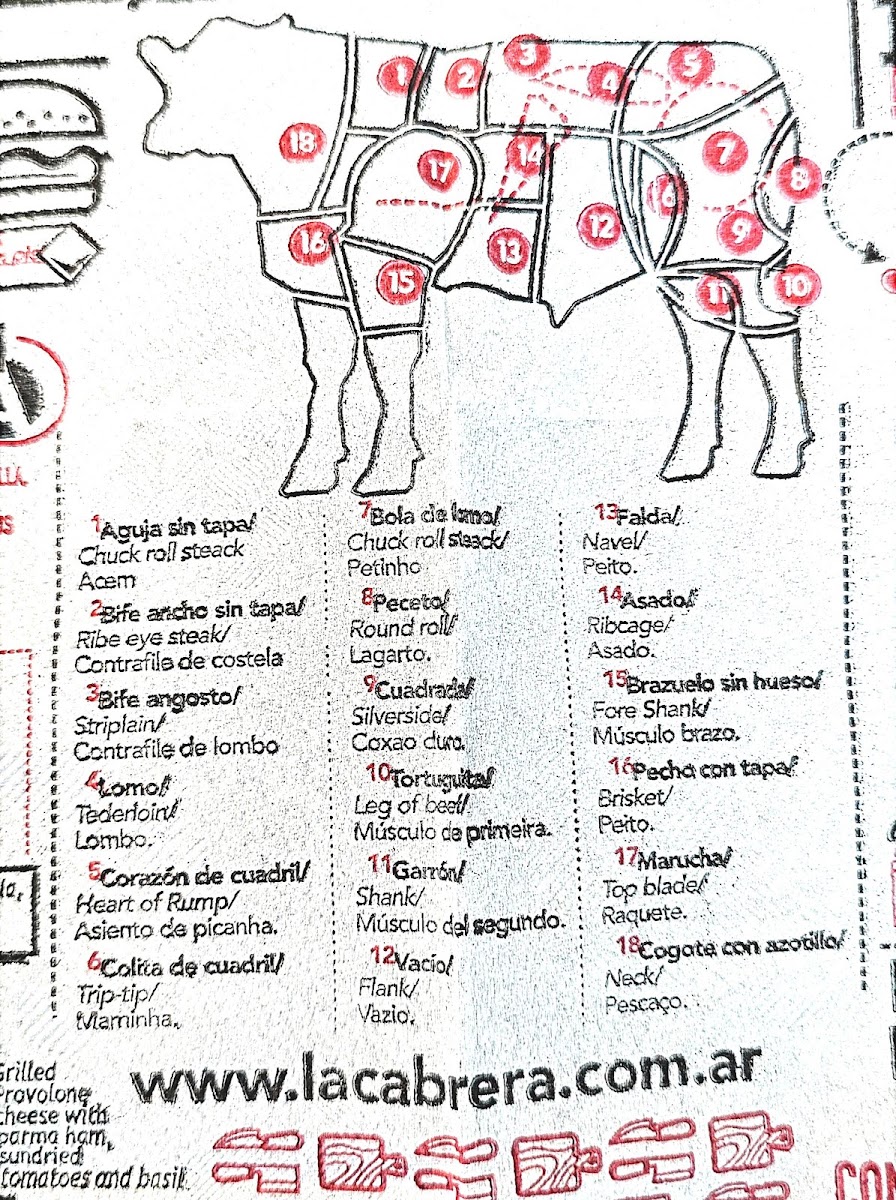 1
2
3
4
5
6
7
8
9
10
11
12
13
14
15
16
17
18
1Aguja sin tapa/
Chuck roll steack
Acem
2Bife ancho sin tapa/
Ribe eye steak/
Contrafile de costela
3Bife angosto/
Striplain/
Contrafile de lombo
4Lomo/
Tederloin/
Lombo.
5Corazón de cuadril/
Heart of Rump/
Asiento de picanha.
6Colita de cuadril/
Trip-tip/
Maminha.
7Bola de lomo/
Chuck roll steack/
Petinho
8Peceto/
Round roll/
Lagarto.
9Cuadrada/
Silverside/
Coxao duro.
10Tortuguita/
Leg of beef/
Músculo de primeira.
11Garrón/
Shank/
Músculo del segundo.
12Vacio/
Flank/
Vazio.
13Falda/
Navel/
Peito.
14Asado/
Ribcage/
Asado.
15Brazuelo sin hueso/
Fore Shank/
Músculo brazo.
16Pecho con tapa/
Brisket/
Peito.
17Marucha/
Top blade/
Raquete.
18Cogote con azotillo/
Neck/
Pescaço.
www.lacabrera.com.ar
Grilled
Provolone
cheese with
parma ham,
sundried
tomatoes and basil.